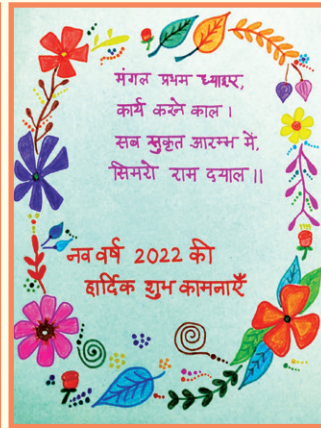 मंगल प्रथम ध्याइए,
कार्य करने काल।
सब सुकृत आरम्भ में,
सिमरो राम दयाल॥
नव वर्ष 2022 की
हार्दिक शुभ कामनाएँ